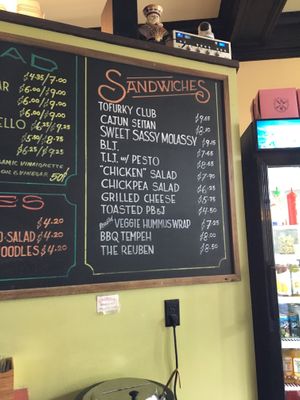 AD
$4.35/7.00
AR $6.00/9.00
$6.00/9.00
$6.00/9.00
ELLO $6.25/9.25
$5.50/8.75
$6.25/9.25
50¢
ES
$4.20
O SALAD $4.20
OODLES $4.20
SANDWICHES
TOFURKY CLUB $9.65
CAJUN SEITAN $8.10
SWEET SASSY MOLASSY $9.15
B.L.T. $7.65
T.L.T. w/ PESTO
"CHICKEN" SALAD $7.90
CHICKPEA SALAD $6.75
GRILLED CHEESE $5.75
TOASTED PB&J $4.50
VEGGIE HUMMUS WRAP $7.25
BBQ TEMPEH $8.00
THE REUBEN $8.50